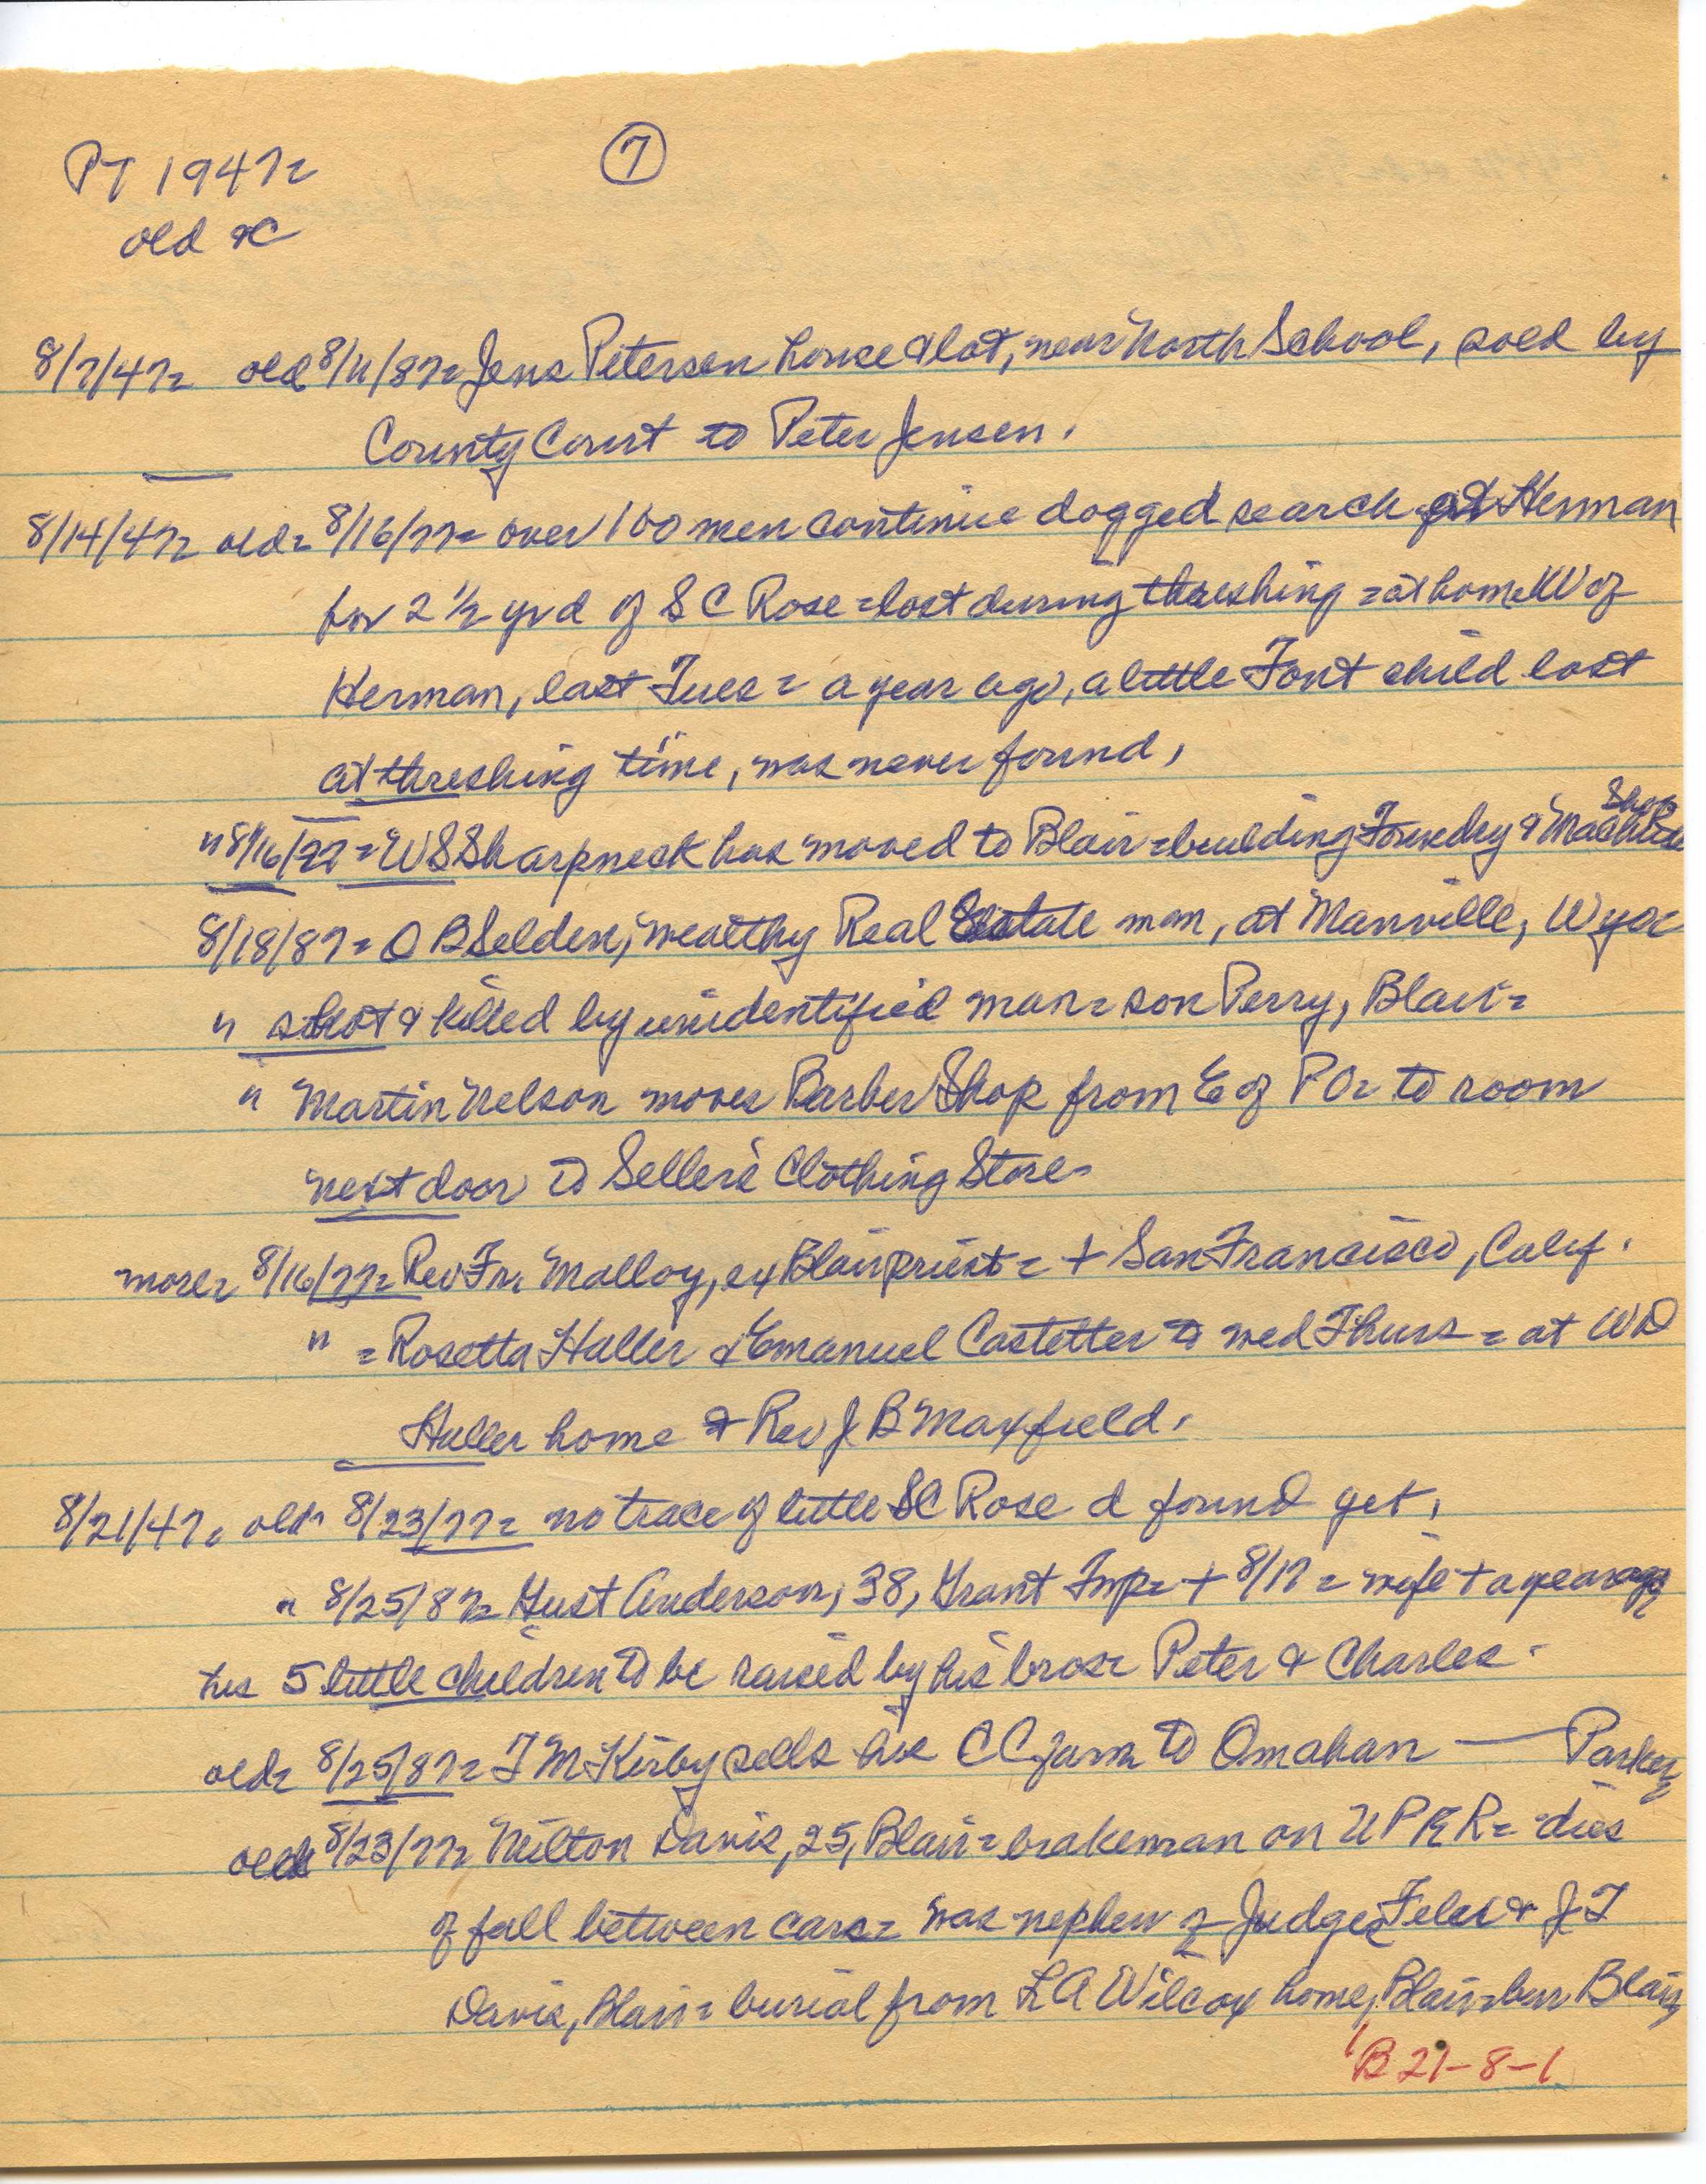 PT 1947=
⑦
old &C
8/7/47= old 8/11/87= Jens Petersen house & lot, near North School, sold by
County Court to Peter Jensen.
8/14/47= old= 8/16/77= over 100 men continue dogged search at Herman
for 2 1/2 yr d of S C Rose = lost during threshing = at home NW of
Herman, last Tues = a year ago, a little Font child lost
at threshing time, was never found,
" 8/16/77 = W S Sharpneck has moved to Blair = building Foundry & Machine Shop
8/18/87= O B Selden, wealthy Real Estate man, at Manville, Wyo
" shot & killed by unidentified man = son Perry, Blair =
" Martin Nelson moves Barber Shop from E of P O = to room
next door to Seller's Clothing Store =
more= 8/16/77= Rev Fr. Malloy, ex Blair priest = + San Francisco, Calif.
" = Rosetta Haller & Emanuel Castetter to wed Thurs = at W D
Haller home & Rev J B Maxfield.
8/21/47= old= 8/23/77= no trace of little S C Rose d found yet,
" 8/25/87= Gust Anderson, 38, Grant Twp = + 8/17 = wife + a year ago
his 5 little children to be raised by his bros = Peter & Charles =
old= 8/25/87= T M Kirby sells his C C farm to Omahan — Parker=
old 8/23/77= Milton Davis, 25, Blair = brakeman on U P RR = dies
of fall between cars = was nephew of Judges & J T
Davis, Blair = burial from L A Wilcox home, Blair = bur Blair=
B 21-8-1